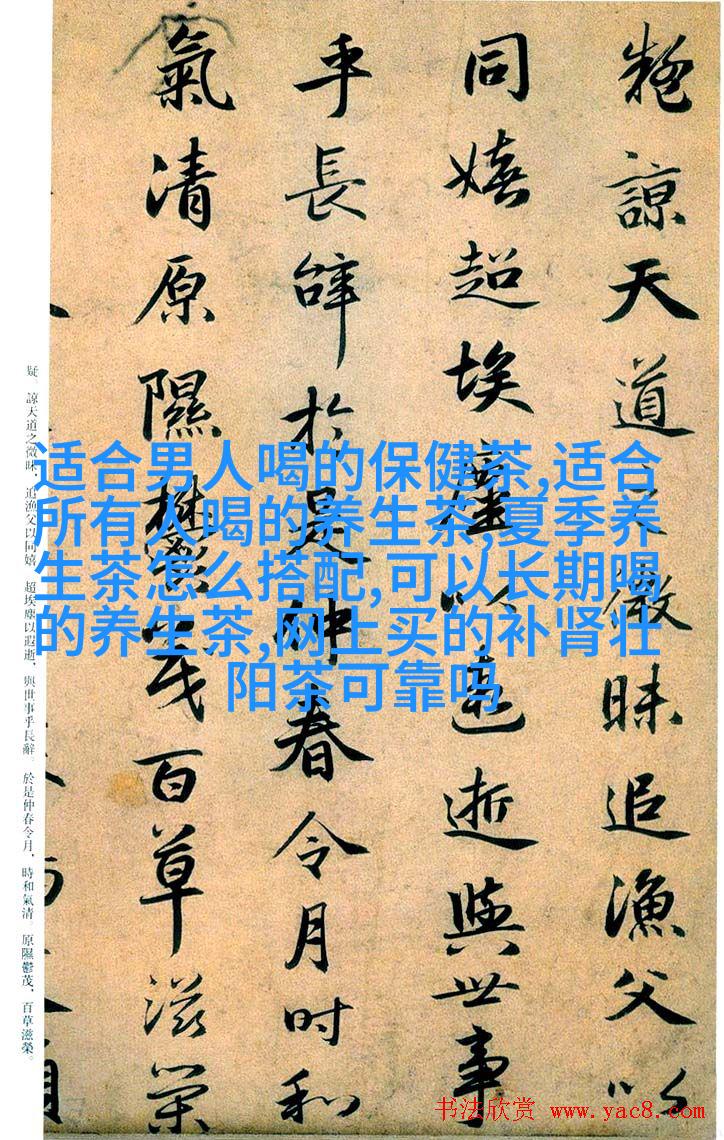 疑諒天道之微昧追漁父以
同嬉超埃塵以遐逝與世事
乎長辭於是仲春令月時和
氣清原隰鬱茂百草滋榮
疑。諒天道之微昧，追漁父以同嬉。超埃塵以遐逝，與世事乎長辭。於是仲春令月，時和氣清。原隰鬱茂，百草滋榮。
适合男人喝的保健茶,适合
所有人喝的养生茶,夏季养
生茶怎么搭配,可以长期喝
的养生茶,网上买的补肾壮
阳茶可靠吗
书法欣赏 www.yac8.com